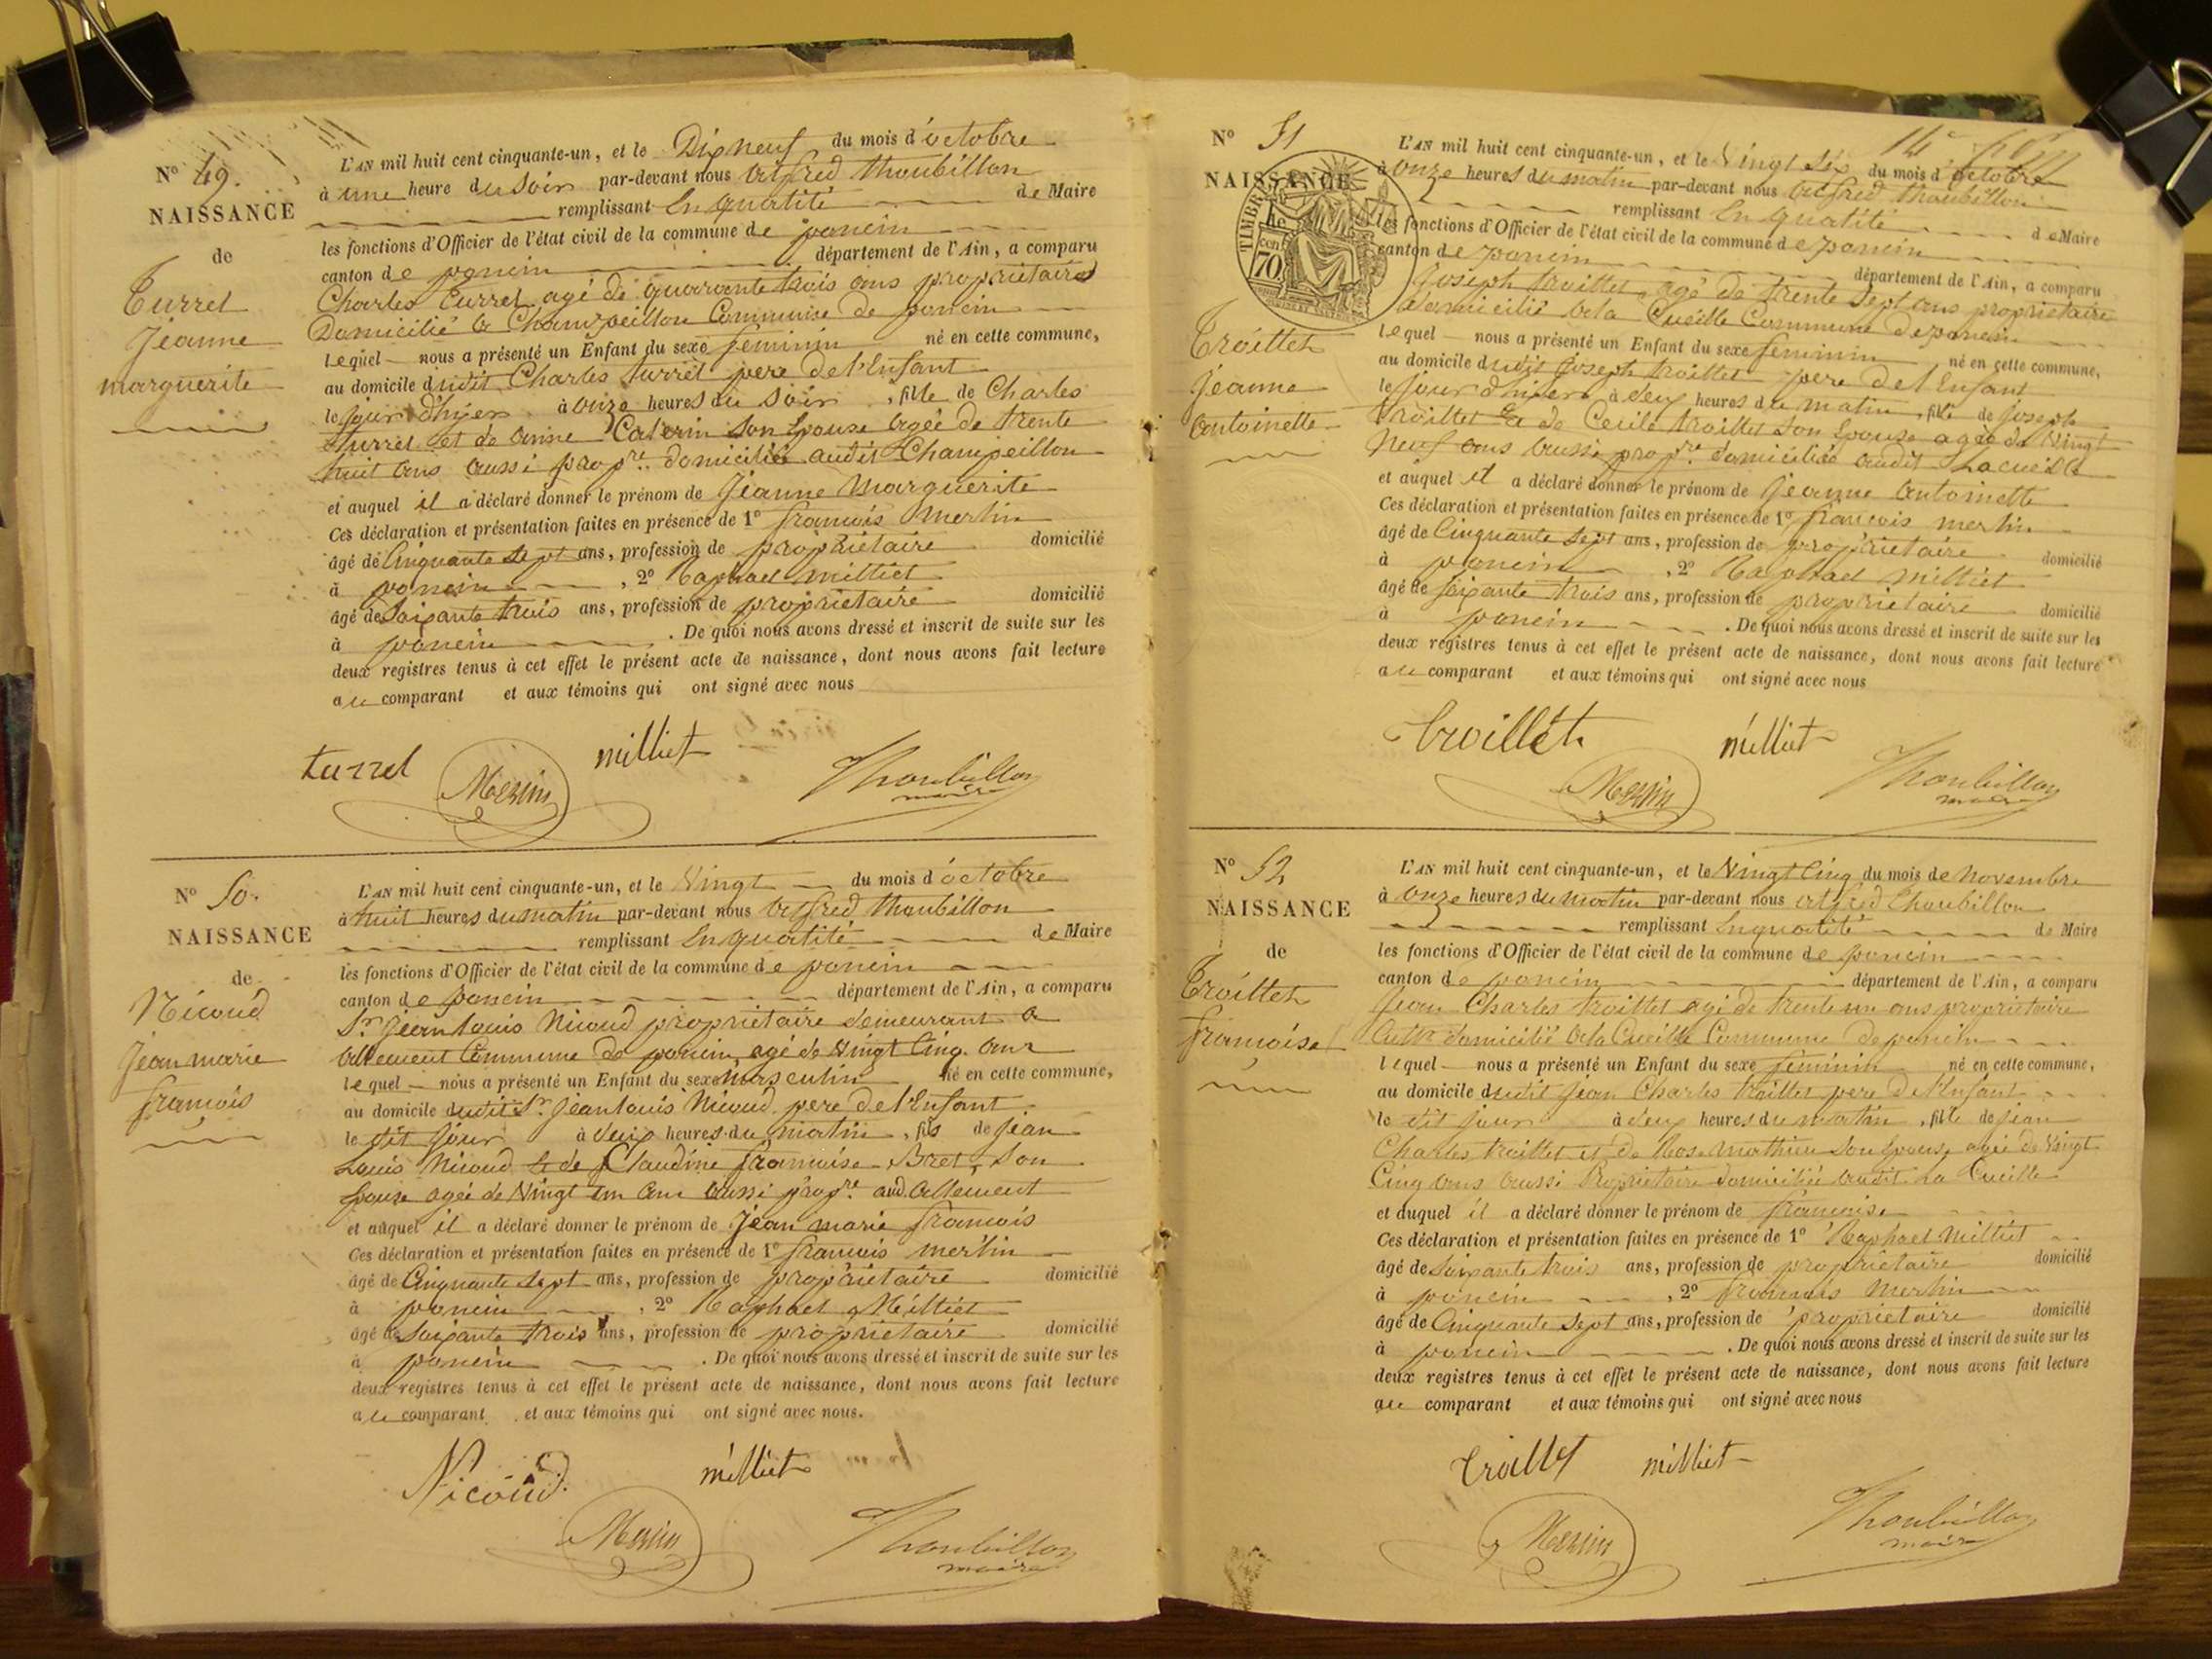 N° 49.
NAISSANCE
de
Turrel
Jeanne
marguerite
L'AN mil huit cent cinquante-un, et le Dix neuf du mois d'octobre
à une heure du soir par-devant nous alfred thoubillon
remplissant en qualité de Maire
les fonctions d'Officier de l'état civil de la commune de poncin
canton de poncin département de l'Ain, a comparu
Charles Turrel agé de quarante trois ans propriétaire
Domicilié a Champeillon Commune de poncin
lequel nous a présenté un Enfant du sexe féminin né en cette commune,
au domicile dudit Charles turrel pere de l'Enfant
le jour d'hier à onze heures du soir, fille de Charles
turrel et de anne Caterin son Epouse agée de trente
huit ans aussi propre. domiciliée audit Champeillon
et auquel il a déclaré donner le prénom de Jeanne Marguerite
Ces déclaration et présentation faites en présence de 1° francois Merlin
âgé de Cinquante sept ans, profession de propriétaire domicilié
à poncin, 2° Raphael milliet
âgé de Soixante trois ans, profession de propriétaire domicilié
à poncin. De quoi nous avons dressé et inscrit de suite sur les
deux registres tenus à cet effet le présent acte de naissance, dont nous avons fait lecture
au comparant et aux témoins qui ont signé avec nous
turrel Merlin milliet Thoubillon
maire
N° 50.
NAISSANCE
de
Nicoud
Jean marie
francois
L'AN mil huit cent cinquante-un, et le Vingt du mois d'octobre
à huit heures du matin par-devant nous alfred thoubillon
remplissant en qualité de Maire
les fonctions d'Officier de l'état civil de la commune de poncin
canton de poncin département de l'Ain, a comparu
Sr. Jean Louis Nicoud propriétaire demeurant a
allement Commune de poncin, agé de Vingt Cinq ans
lequel nous a présenté un Enfant du sexe masculin né en cette commune,
au domicile dudit Sr. Jean Louis Nicoud pere de l'Enfant
le dit jour à deux heures du matin, fils de Jean
Louis Nicoud et de Claudine francoise Bret, son
Epouse agée de Vingt un ans aussi propre. aud. allement
et auquel il a déclaré donner le prénom de Jean marie francois
Ces déclaration et présentation faites en présence de 1° francois merlin
âgé de Cinquante sept ans, profession de propriétaire domicilié
à poncin, 2° Raphael Milliet
âgé de Soixante trois ans, profession de propriétaire domicilié
à poncin. De quoi nous avons dressé et inscrit de suite sur les
deux registres tenus à cet effet le présent acte de naissance, dont nous avons fait lecture
au comparant et aux témoins qui ont signé avec nous.
Nicoud milliet
Merlin Thoubillon
maire
14e
N° 51
NAISSANCE
TIMBRE
70
Troillet
Jeanne
antoinette
L'AN mil huit cent cinquante-un, et le Vingt six du mois d'octobre
à onze heures du matin par-devant nous alfred thoubillon
remplissant en qualité de Maire
les fonctions d'Officier de l'état civil de la commune de poncin
canton de poncin département de l'Ain, a comparu
Joseph troillet agé de trente sept ans propriétaire
domicilié à la Cueille Commune de poncin
lequel nous a présenté un Enfant du sexe féminin né en cette commune,
au domicile dudit Joseph troillet pere de l'Enfant
le jour d'hier à deux heures du matin, fille de Joseph
troillet Et de Cecile troillet son Epouse agée de Vingt
Neuf ans aussi propre. domiciliée audit Lacueille
et auquel il a déclaré donner le prénom de Jeanne antoinette
Ces déclaration et présentation faites en présence de 1° francois merlin
âgé de Cinquante sept ans, profession de propriétaire domicilié
à poncin, 2° Raphael Milliet
âgé de Soixante trois ans, profession de propriétaire domicilié
à poncin. De quoi nous avons dressé et inscrit de suite sur les
deux registres tenus à cet effet le présent acte de naissance, dont nous avons fait lecture
au comparant et aux témoins qui ont signé avec nous
troillet milliet
Merlin Thoubillon
maire
N° 52
NAISSANCE
de
Troillet
francoise
L'AN mil huit cent cinquante-un, et le Vingt Cinq du mois de Novembre
à onze heures du matin par-devant nous alfred thoubillon
remplissant En qualité de Maire
les fonctions d'Officier de l'état civil de la commune de poncin
canton de poncin département de l'Ain, a comparu
Jean Charles troillet agé de trente un ans propriétaire
domicilié à la Cueille Commune de poncin
lequel nous a présenté un Enfant du sexe féminin né en cette commune,
au domicile dudit Jean Charles troillet pere de l'Enfant
le dit jour à deux heures du matin, fille de Jean
Charles troillet et de Rose mathieu son Epouse agée de Vingt
Cinq ans aussi Propriétaire domiciliée audit La Cueille
et auquel il a déclaré donner le prénom de francoise
Ces déclaration et présentation faites en présence de 1° Raphael Milliet
âgé de Soixante trois ans, profession de propriétaire domicilié
à poncin, 2° francois Merlin
âgé de Cinquante sept ans, profession de propriétaire domicilié
à poncin. De quoi nous avons dressé et inscrit de suite sur les
deux registres tenus à cet effet le présent acte de naissance, dont nous avons fait lecture
au comparant et aux témoins qui ont signé avec nous
troillet milliet
Merlin Thoubillon
maire